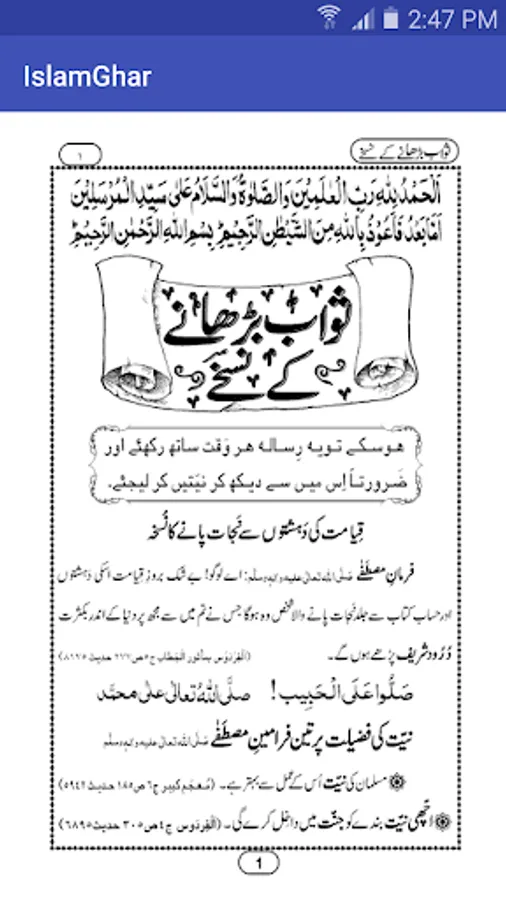 2:47 PM
IslamGhar
ثواب بڑھانے کے نسخے
۱
اَلْحَمْدُ لِلّٰهِ رَبِّ الْعٰلَمِیْنَ وَالصَّلٰوةُ وَالسَّلَامُ عَلٰی سَیِّدِ الْمُرْسَلِیْنَ
اَمَّا بَعْدُ فَاَعُوْذُ بِاللّٰهِ مِنَ الشَّیْطٰنِ الرَّجِیْمِ ؕ بِسْمِ اللّٰهِ الرَّحْمٰنِ الرَّحِیْمِ ؕ
ثواب بڑھانے
کے نسخے
ہوسکے تو یہ رِسالہ ہر وَقت ساتھ رکھئے اور
ضَرورتاً اِس میں سے دیکھ کر نیّتیں کر لیجئے۔
قِیامت کی دَہشتوں سے نَجات پانے کا نُسخہ
فرمانِ مصطَفٰے صلَّی اللہ تعالٰی علیہ وٰلہٖ وسلَّم: اے لوگو! بے شک بروزِ قِیامت اسکی دَہشتوں
اور حساب کتاب سے جلد نَجات پانے والا شخص وہ ہوگا جس نے تم میں سے مجھ پر دنیا کے اندر بکثرت
دُرُود شریف پڑھے ہوں گے۔ (اَلْفِردَوس بمأثور الْخِطاب ج۵ ص۲۷۷ حدیث ۸۱۷۵)
صَلُّوا عَلَی الْحَبِیب! صلَّی اللہُ تعالٰی علٰی محمَّد
نیّت کی فضیلت پر تین فرامینِ مصطَفٰے صلَّی اللہ تعالٰی علیہ وٰلہٖ وسلَّم
مسلمان کی نیّت اُس کے عمل سے بہتر ہے۔ (مُعجَم کبیر ج۶ ص۱۸۵ حدیث ۵۹۴۲)
اچّھی نیّت بندے کو جنّت میں داخِل کرے گی۔ (اَلْفِردَوس ج۴ ص۳۰۵ حدیث ۶۸۹۵)
1